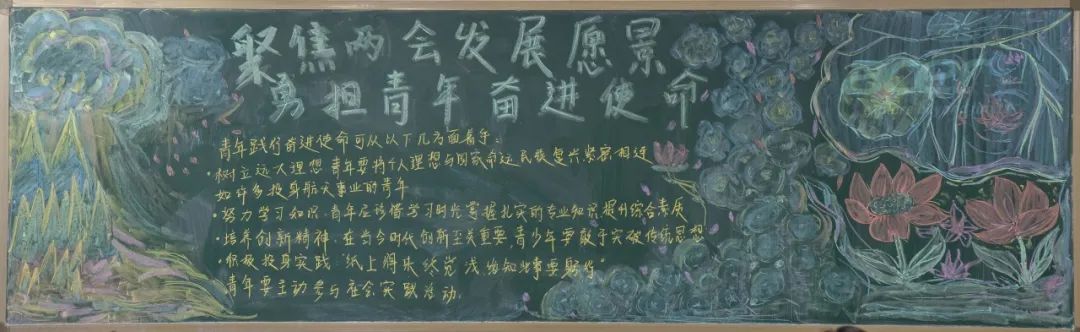 聚焦两会发展愿景
勇担青年奋进使命
青年践行奋进使命可从以下几方面着手：
·树立远大理想 青年要将个人理想与国家命运民族复兴紧密相连
如许多投身航天事业的青年
·努力学习知识、青年应珍惜学习时光掌握扎实的专业知识提升综合素质
·培养创新精神、在当今时代创新至关重要，青少年要敢于突破传统思想
·积极投身实践“纸上得来终觉浅绝知此事要躬行”
青年要主动参与社会实践活动.